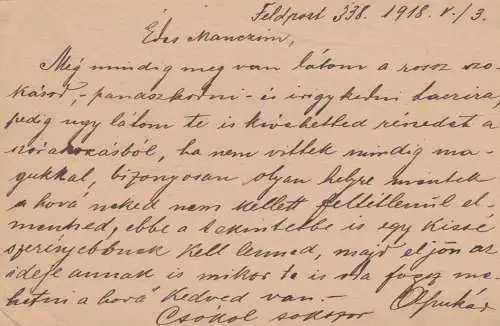 Feldpost 338. 1918. V./3.
Édes Manczim,
Még mindig meg van látom a rosz szo-
kásod, - panaszkodni - és irigykedni Laczira
pedig ugy látom te is kiveheted részedet a
szórakozásból, ha nem vittek mindig ma-
gukkal, bizonyosan olyan helyre mentek
a hová neked nem kellett feltétlenül el-
menned, ebbe a tekintetbe is egy kissé
szerényebbnek kell lenned, majd eljön az
ideje annak is mikor te is oda fogsz me-
hetni a hová kedved van. -
Csókol sokszor Apukád